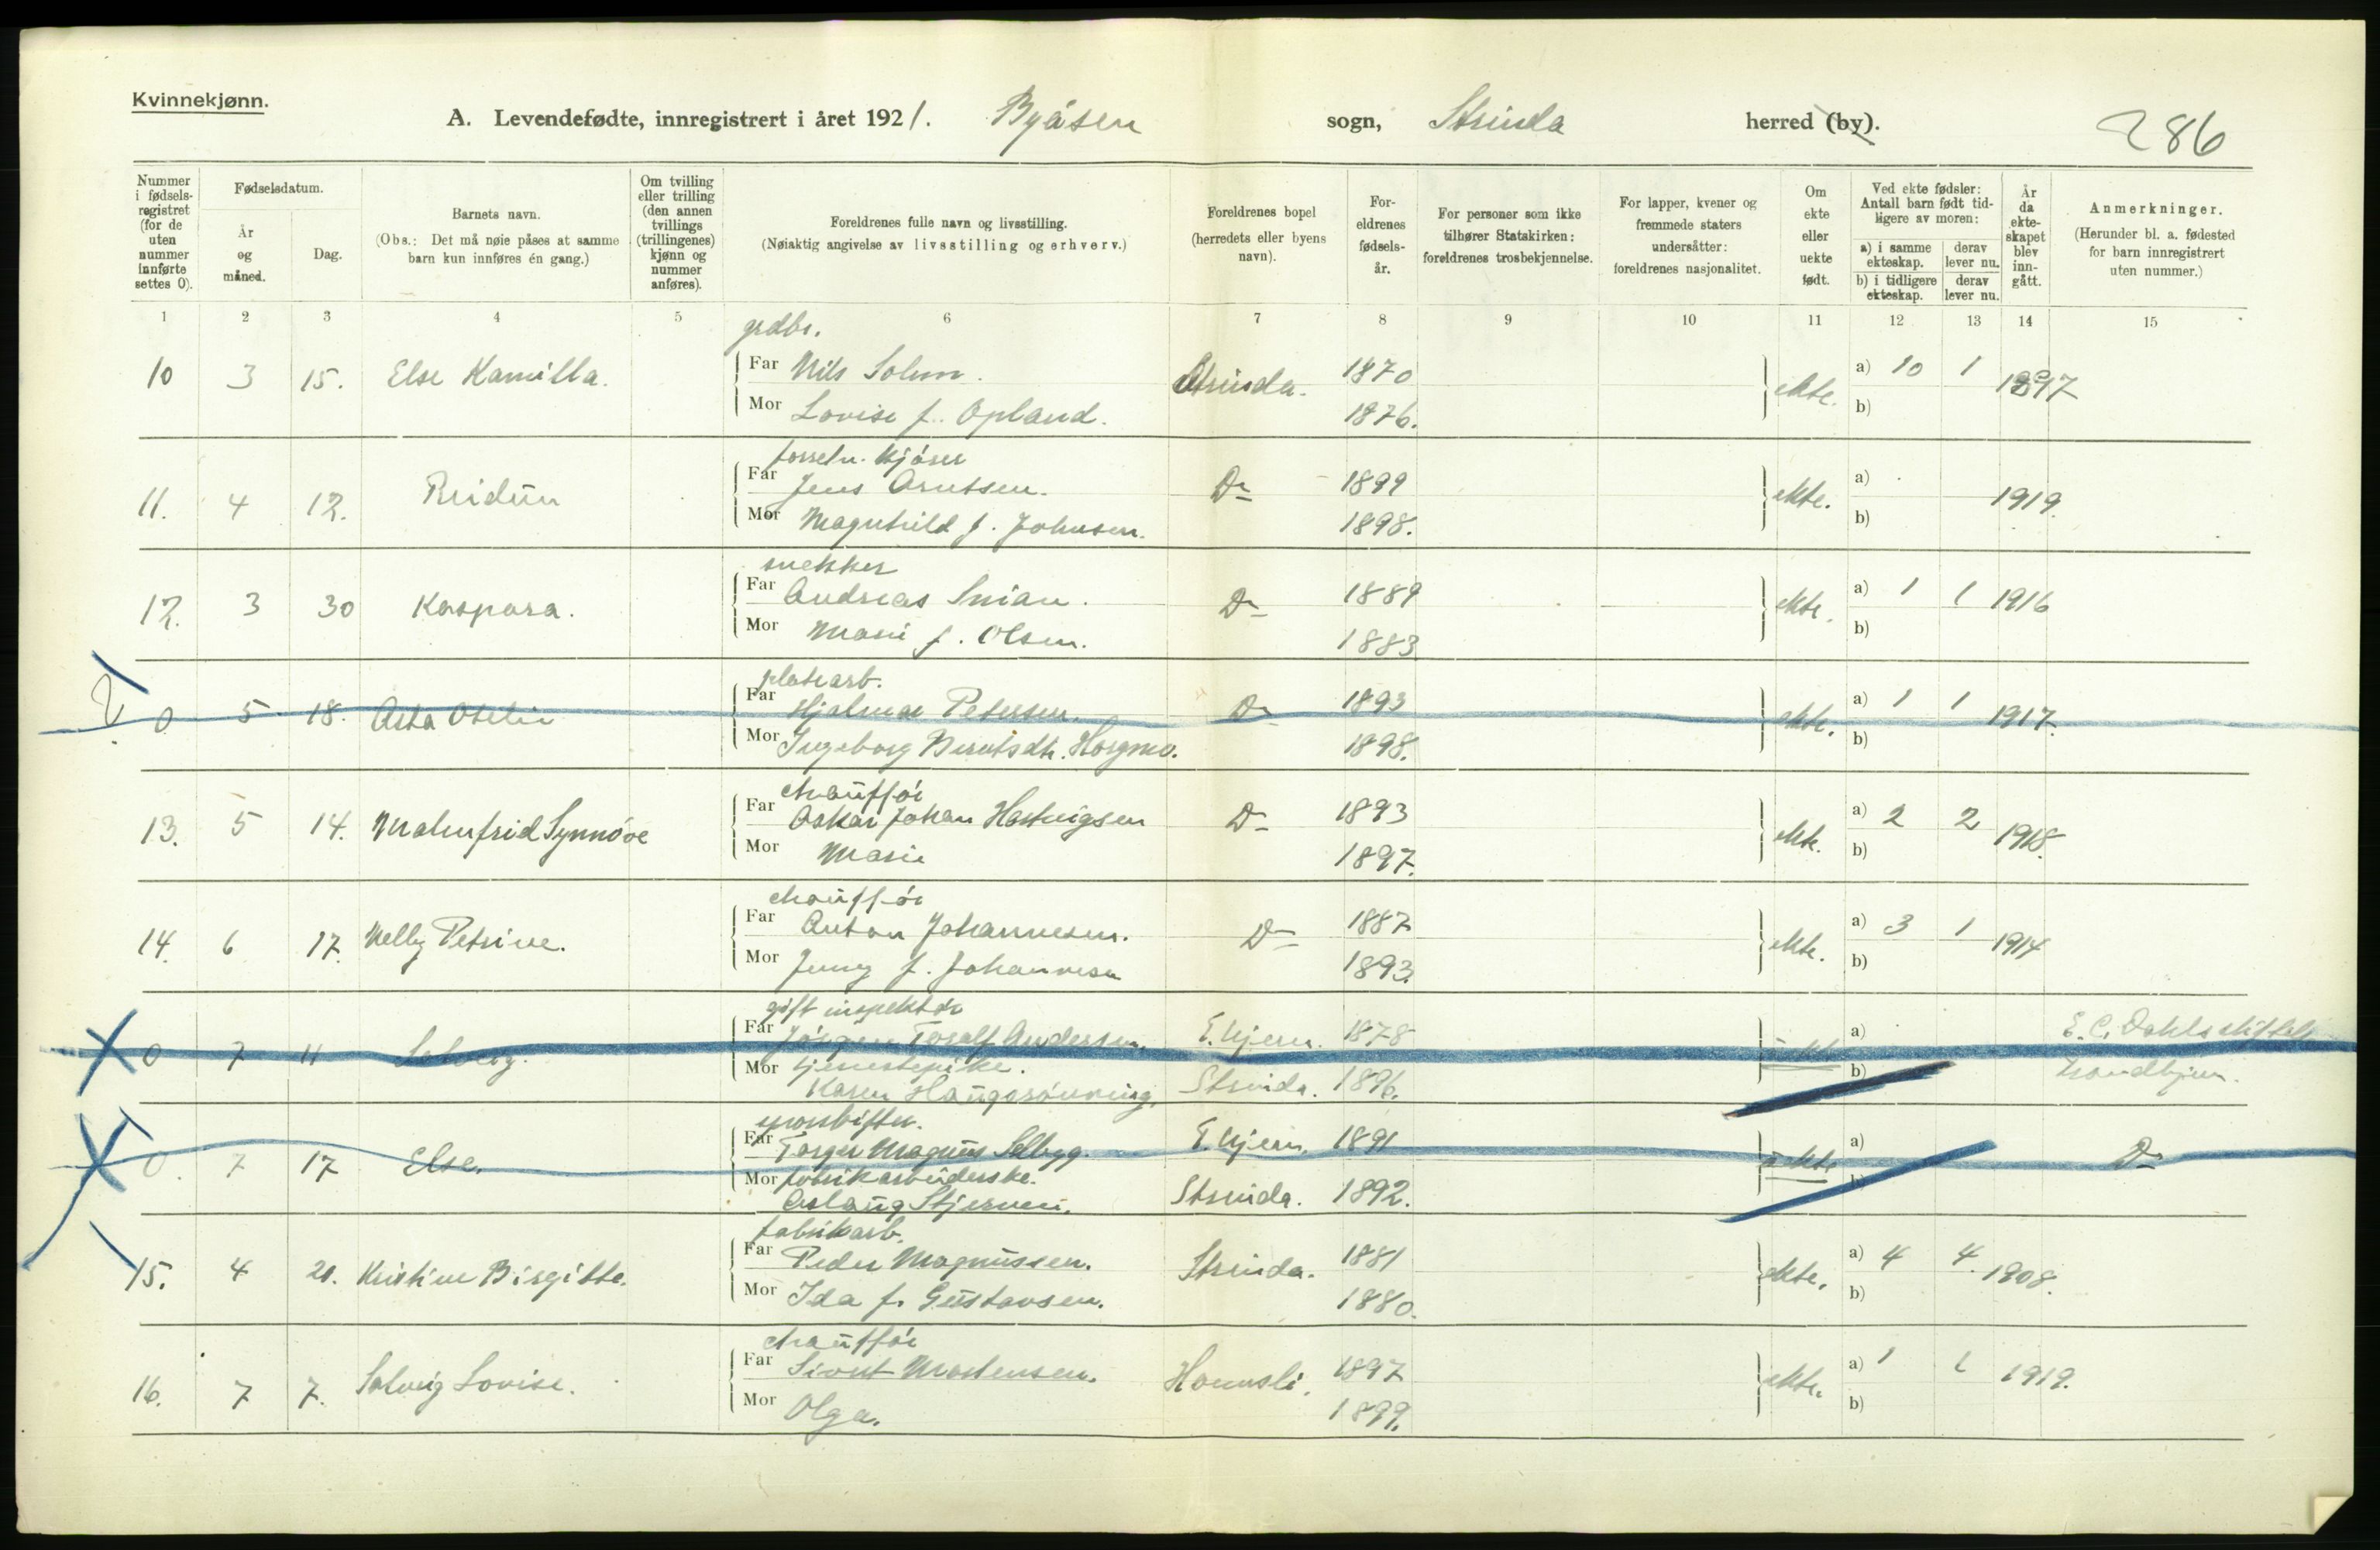 Kvinnekjønn.
A. Levendefødte, innregistrert i året 1921. Byåsen sogn, Strinda herred (by). 286
Nummer i fødselsregistret (for de uten nummer innførte settes 0).
Fødselsdatum.
År og måned.
Dag.
Barnets navn.
(Obs.: Det må nøie påses at samme barn kun innføres én gang.)
Om tvilling eller trilling (den annen tvillings (trillingenes) kjønn og nummer anføres).
Foreldrenes fulle navn og livsstilling.
(Nøiaktig angivelse av livsstilling og erhverv.)
Foreldrenes bopel (herredets eller byens navn).
Foreldrenes fødselsår.
For personer som ikke tilhører Statskirken: foreldrenes trosbekjennelse.
For lapper, kvener og fremmede staters undersåtter: foreldrenes nasjonalitet.
Om ekte eller uekte født.
Ved ekte fødsler: Antall barn født tidligere av moren:
a) i samme ekteskap.
derav lever nu.
b) i tidligere ekteskap.
derav lever nu.
År da ekteskapet blev inngått.
Anmerkninger.
(Herunder bl. a. fødested for barn innregistrert uten nummer.)
1 2 3 4 5 6 7 8 9 10 11 12 13 14 15
grdbr.
10 3 15. Else Kamilla. Far Nils Solum. Strinda. 1870 ekte. a) 10 1 1897
Mor Lovise f. Opland. 1876. b)
11. 4 12. Reidun Far Jens Arntsen. D- 1899 ekte. a) 1919.
Mor Magnhild f. Johnsen. 1898. b)
snekker
12. 3 30 Kaspara. Far Andreas Smian. D- 1889 ekte. a) 1 1 1916
Mor Marie f. Olsen. 1883 b)
platearb.
0 5 18. Asta Otelie Far Hjalmar Petersen. D- 1893 ekte. a) 1 1 1917.
Mor Ingeborg Berntsdtr. Horgmo. 1898. b)
chauffør
13. 5 14. Malmfrid Synnøve Far Oskar Johan Hartvigsen D- 1893 ekte. a) 2 2 1918.
Mor Marie 1897. b)
chauffør
14. 6 17. Nelly Petrine. Far Anton Johannesen. D- 1887 ekte. a) 3 1 1914
Mor Jenny f. Johannesen 1893. b)
gift inspektør
0 7 11 Solveig. Far Jørgen Torolf Andersen. T.hjem. 1878 uekte a) E. C. Dahls stiftelse
Mor tjenestepike. b) Trondhjem.
Karen Haugsrønning. Strinda. 1896.
0. 7 17 Else. Far Torger Magnus Selbygg. T.hjem. 1891 uekte a) D-
Mor fabrikarbeiderske. b)
Aslaug Stjerven. Strinda. 1892.
fabrikarb.
15. 4 21. Kristine Birgitte. Far Peder Magnussen. Strinda. 1881 ekte. a) 4 4. 1908.
Mor Ida f. Gustavsen. 1880. b)
chauffør
16. 7 7. Solveig Lovise. Far Sivert Mortensen. Havnsli. 1897 ekte. a) 1 1 1919.
Mor Olga. 1899. b)